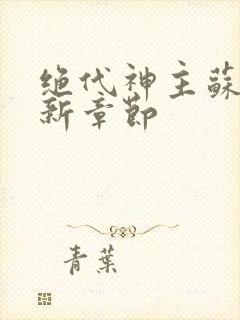 绝代神主蘇
新章節
青葉